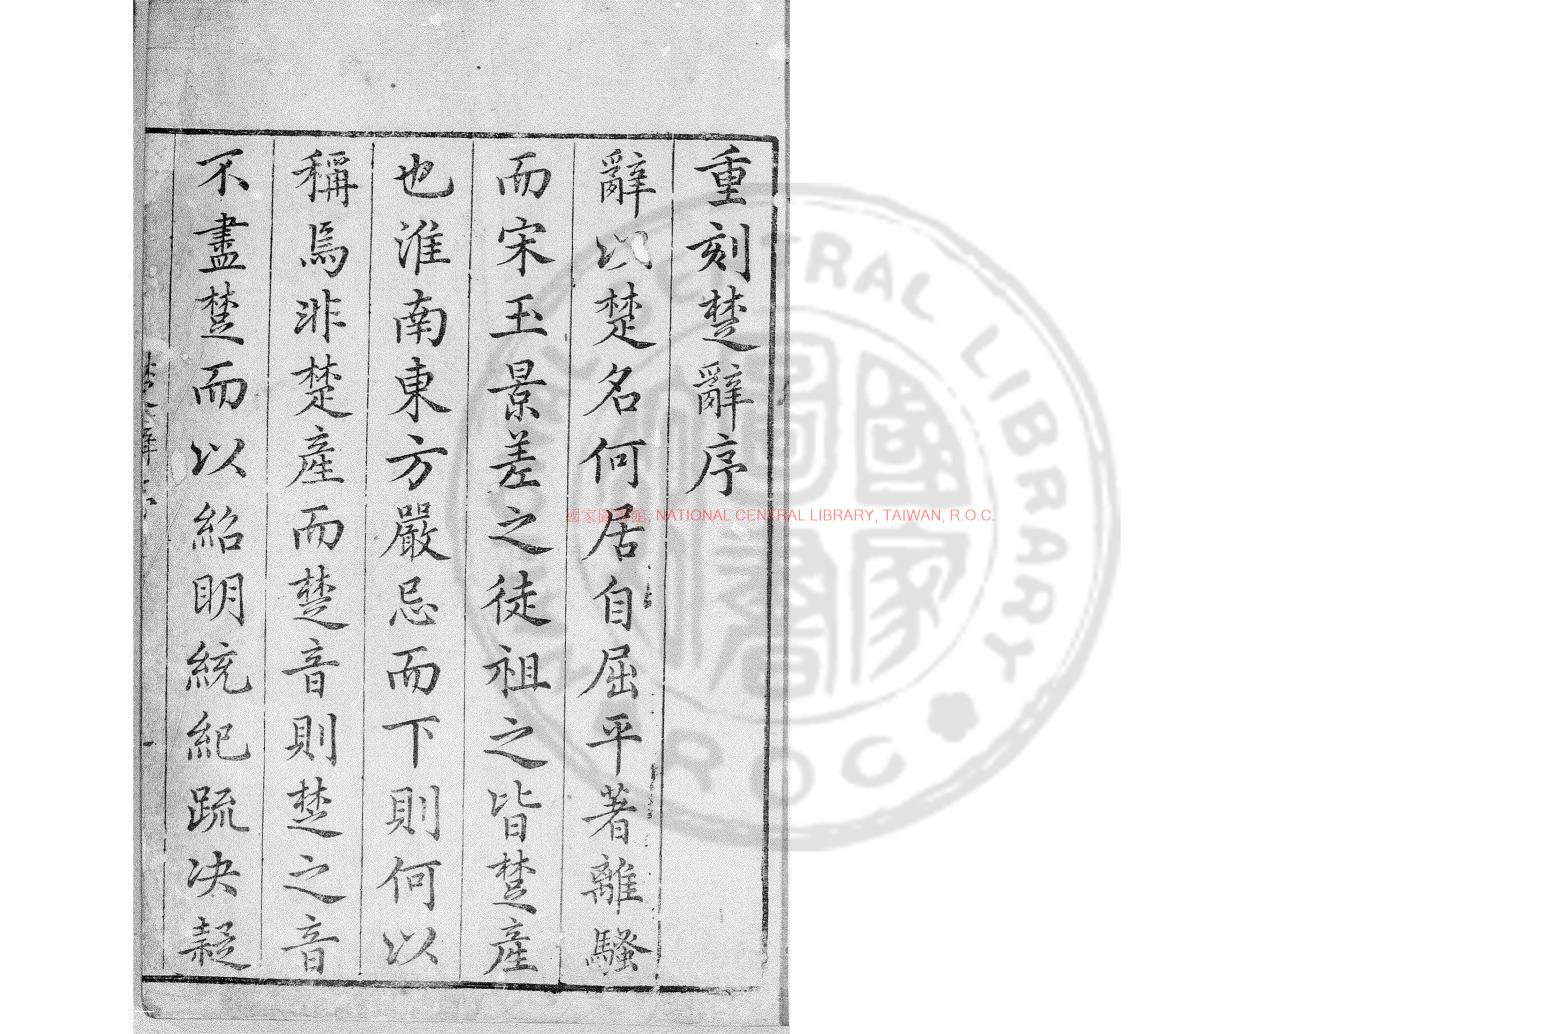 重刻楚辭序
辭以楚名何居自屈平著離騷
而宋玉景差之徒祖之皆楚產
也淮南東方嚴忌而下則何以
稱焉非楚產而楚音則楚之音
不盡楚而以紹明統紀疏决疑
楚辭序
一
國家圖書館, NATIONAL CENTRAL LIBRARY, TAIWAN, R.O.C.
CENTRAL LIBRARY
R O C
國家圖書